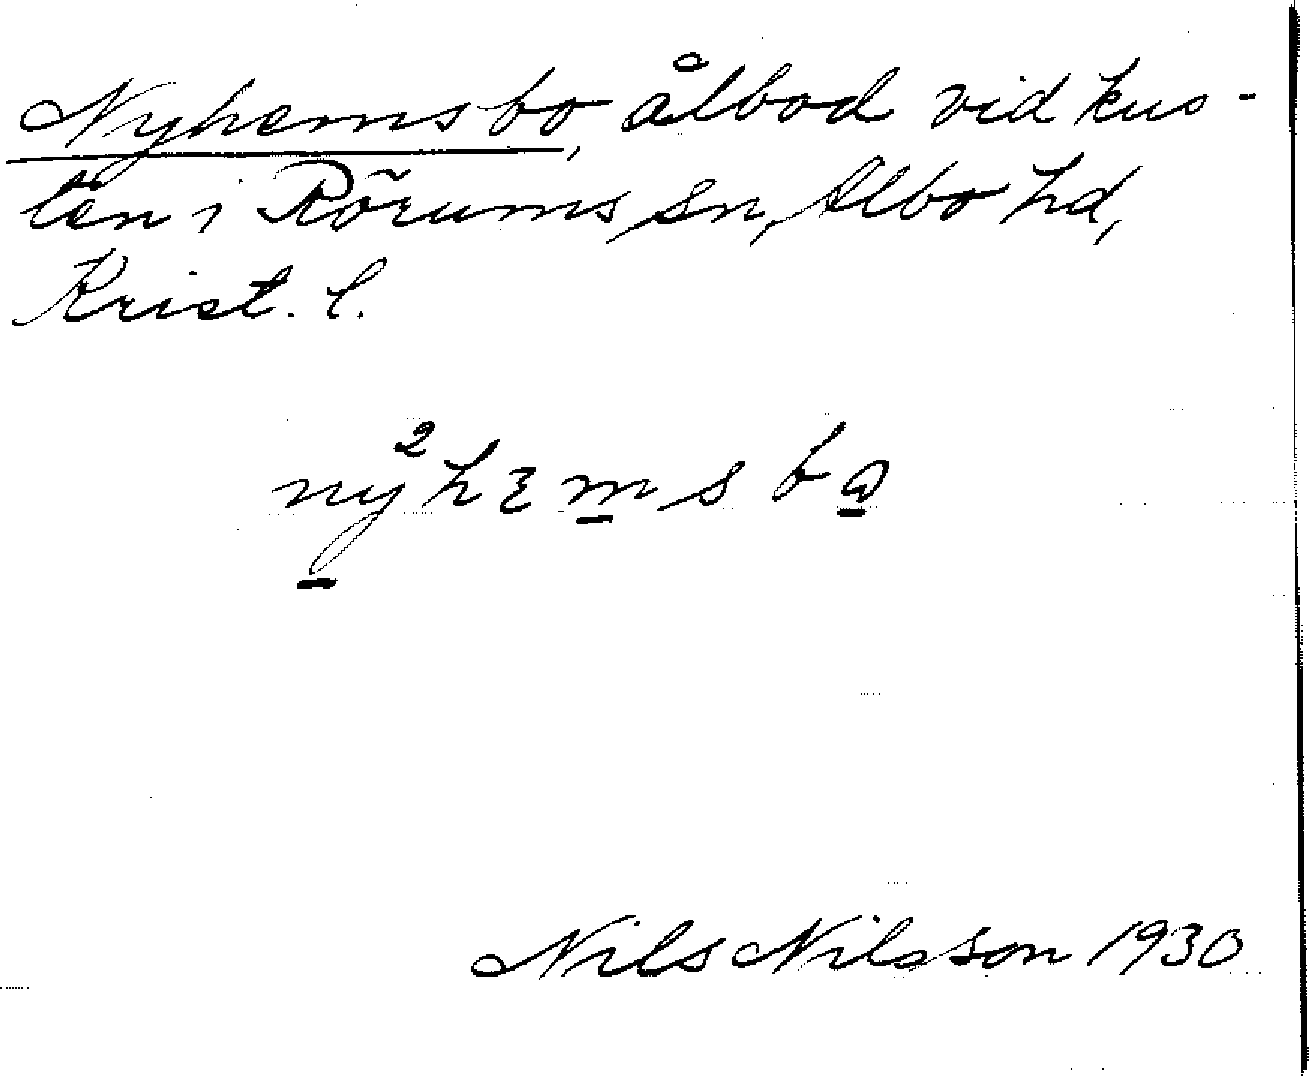 Nyhemsbo, ålbod vid kus-
ten i Rörums sn, Albo hd,
Krist. l.
ny²hɛm̲sbɷ̲
Nils Nilsson 1930